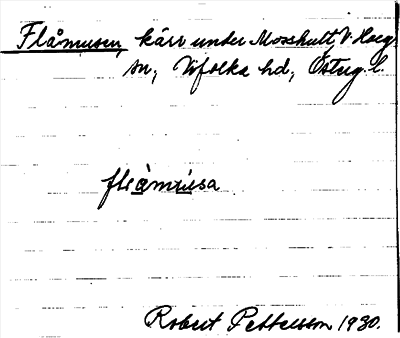 Flåmusen, kärr under Mosshult, V. Harg
sn, Vifolka hd, Östrg. l.
flåmusa
Robert Pettersson 1930.